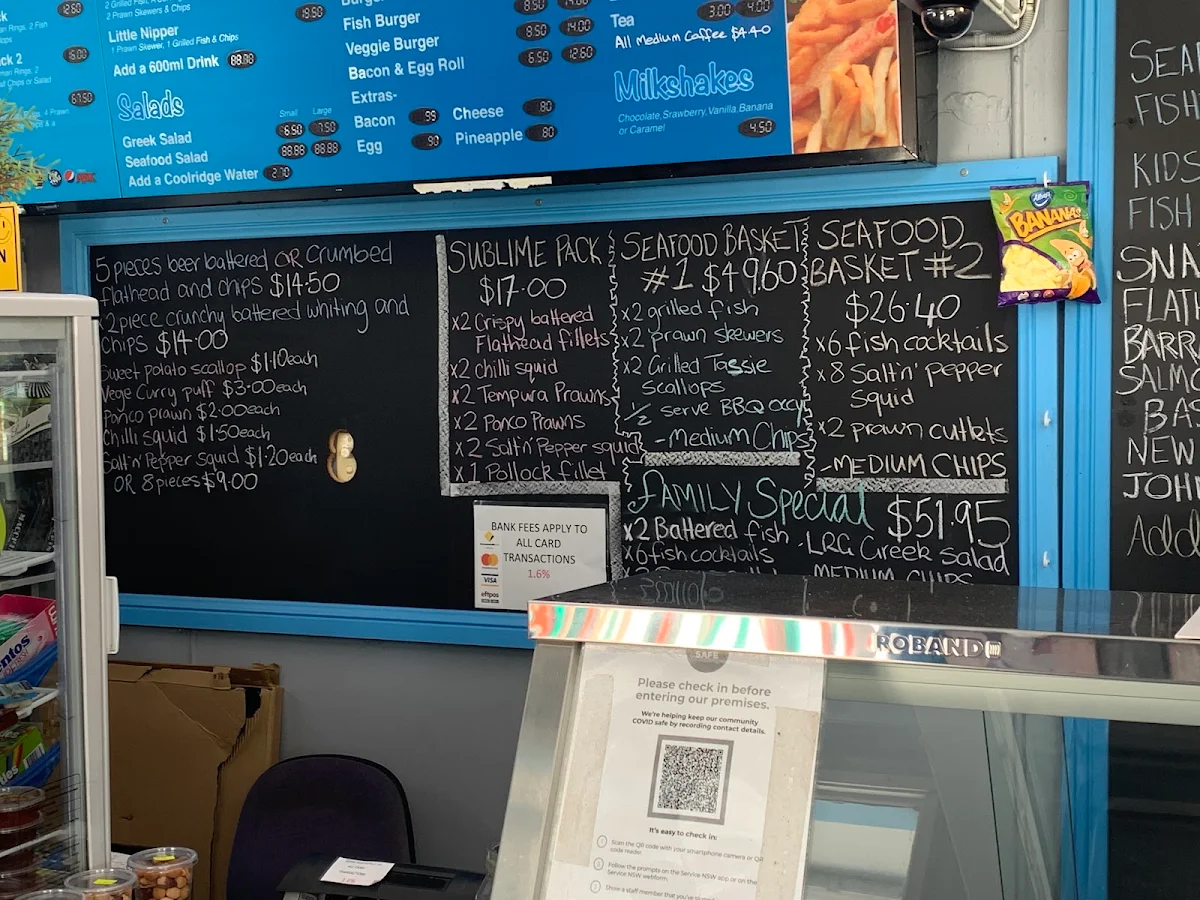 12.50
2 Prawn Skewers & Chips
19.50
Little Nipper
1 Prawn Skewer, 1 Grilled Fish & Chips
Add a 600ml Drink 88.88
Salads
Small Large
Greek Salad 6.50 7.50
Seafood Salad 88.88 88.88
Add a Coolridge Water 2.70
ck 2
15.00
67.50
8.50
Fish Burger 8.50 14.00
Veggie Burger 6.50 12.50
Bacon & Egg Roll
Extras-
Bacon
Egg
Cheese .80
Pineapple .80
Tea 3.00 4.00
All Medium Coffee $4.40
Milkshakes
Chocolate, Strawberry, Vanilla, Banana
or Caramel 4.50
5 pieces beer battered OR Crumbed
flathead and chips $14.50
x2 piece crunchy battered whiting and
chips $14.00
Sweet potato scallop $1.10each
Vege Curry puff $3.00each
Panco prawn $2.00each
Chilli squid $1.50each
Salt'n' Pepper squid $1.20each
OR 8 pieces $9.00
SUBLIME PACK
$17.00
x2 Crispy battered
Flathead fillets
x2 chilli squid
x2 Tempura Prawns
x2 Panco Prawns
x2 Salt n' Pepper squid
x1 Pollock fillet
SEAFOOD BASKET
#1 $49.60
x2 grilled fish
x2 prawn skewers
x2 Grilled Tassie
scallops
1/2 serve BBQ occy
-Medium Chips
SEAFOOD
BASKET #2
$26.40
x6 fish cocktails
x8 Salt n' pepper
squid
x2 prawn cutlets
-MEDIUM CHIPS
FAMILY Special $51.95
x2 Battered fish
x6 fish cocktails
-LRG Greek salad
MEDIUM CHIPS
BANK FEES APPLY TO
ALL CARD
TRANSACTIONS
1.6%
VISA
eftpos
BANANAS
SEAF
FISH
KIDS
FISH
SNA
FLATH
BARR
SALMO
BAS
NEW
JOHN
Add
ROBAND
SAFE
Please check in before
entering our premises.
We're helping keep our community
COVID safe by recording contact details.
It's easy to check in:
1 Scan the QR code with your smartphone camera or QR
code reader.
2 Follow the prompts on the Service NSW app or on the
Service NSW webform.
3 Show a staff member that you've
entos